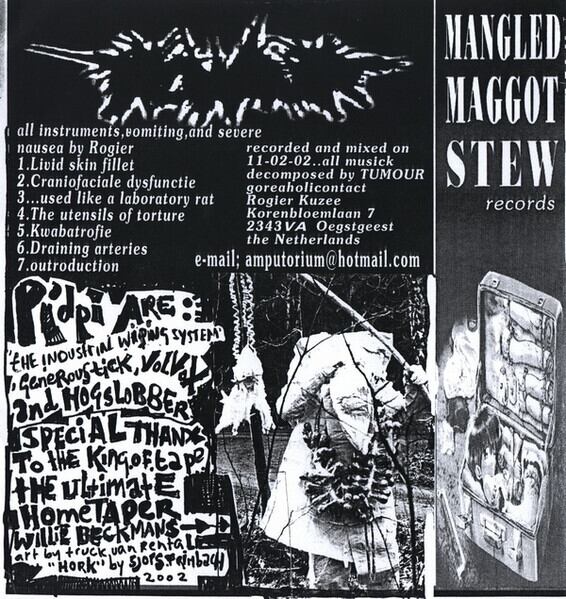 all instruments,vomiting,and severe
nausea by Rogier
1.Livid skin fillet
2.Craniofaciale dysfunctie
3...used like a laboratory rat
4.The utensils of torture
5.Kwabatrofie
6.Draining arteries
7.outroduction
recorded and mixed on
11-02-02..all musick
decomposed by TUMOUR
goreaholicontact
Rogier Kuzee
Korenbloemlaan 7
2343VA Oegstgeest
the Netherlands
e-mail; amputorium@hotmail.com
MANGLED
MAGGOT
STEW
records
Pidpi ARE:
"THE INDUSTRIAL WIPING SYSTEM"
, GENEROUSTICK, VOLVAV
and HOGSLOBBER
SPECIAL THANX
To THE King.of.tape
THE ULTIMATE
HomeTAPER
WILLIE BECKMANS
art by truck van rental
"HORK" by Sjors
2002